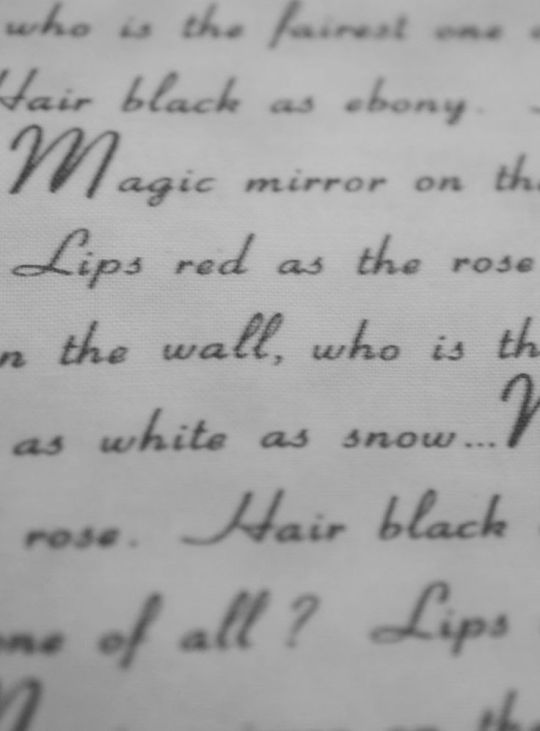 who is the fairest one
Hair black as ebony.
Magic mirror on the
Lips red as the rose
the wall, who is the
as white as snow...
rose. Hair black
one of all? Lips